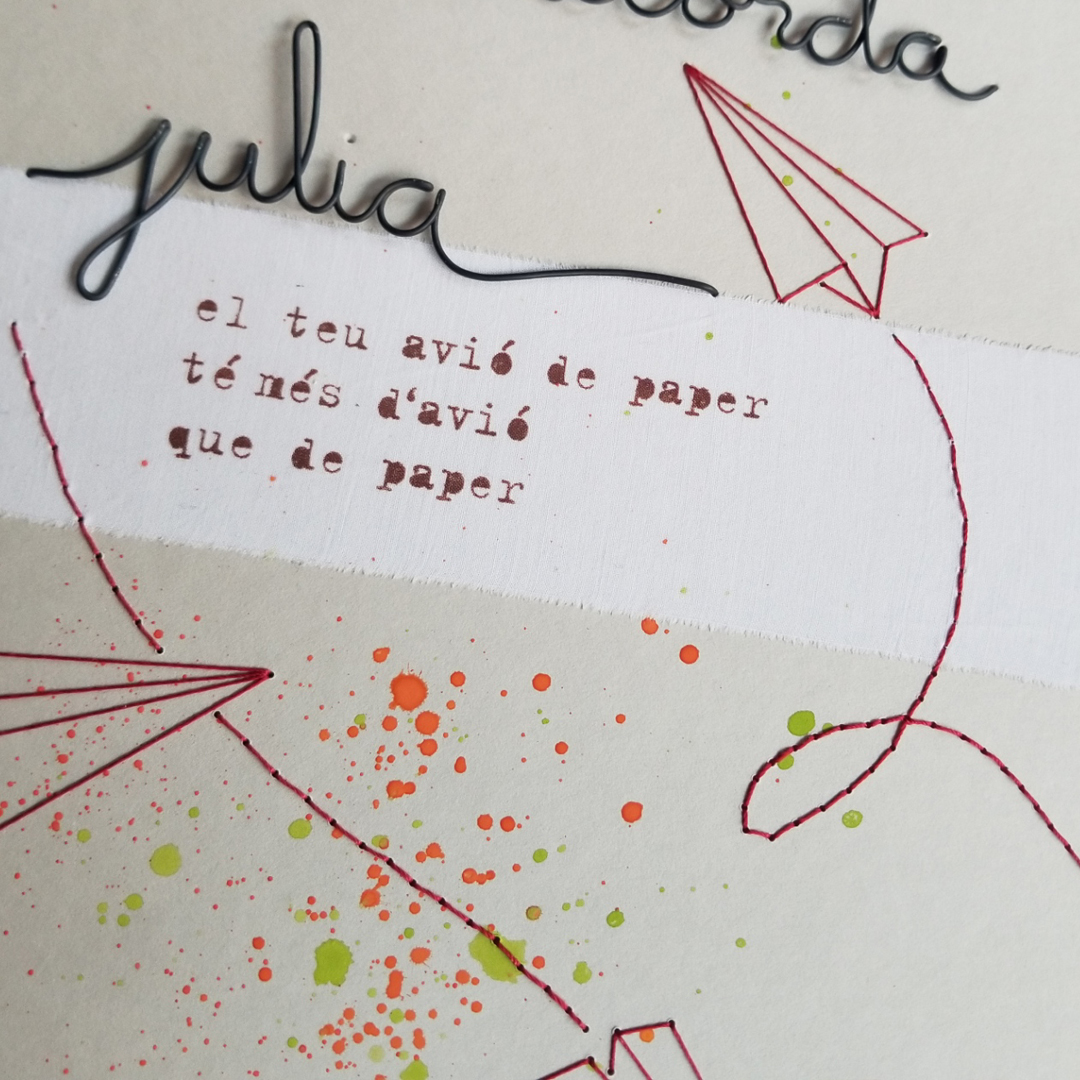 julia
el teu avió de paper
té més d'avió
que de paper